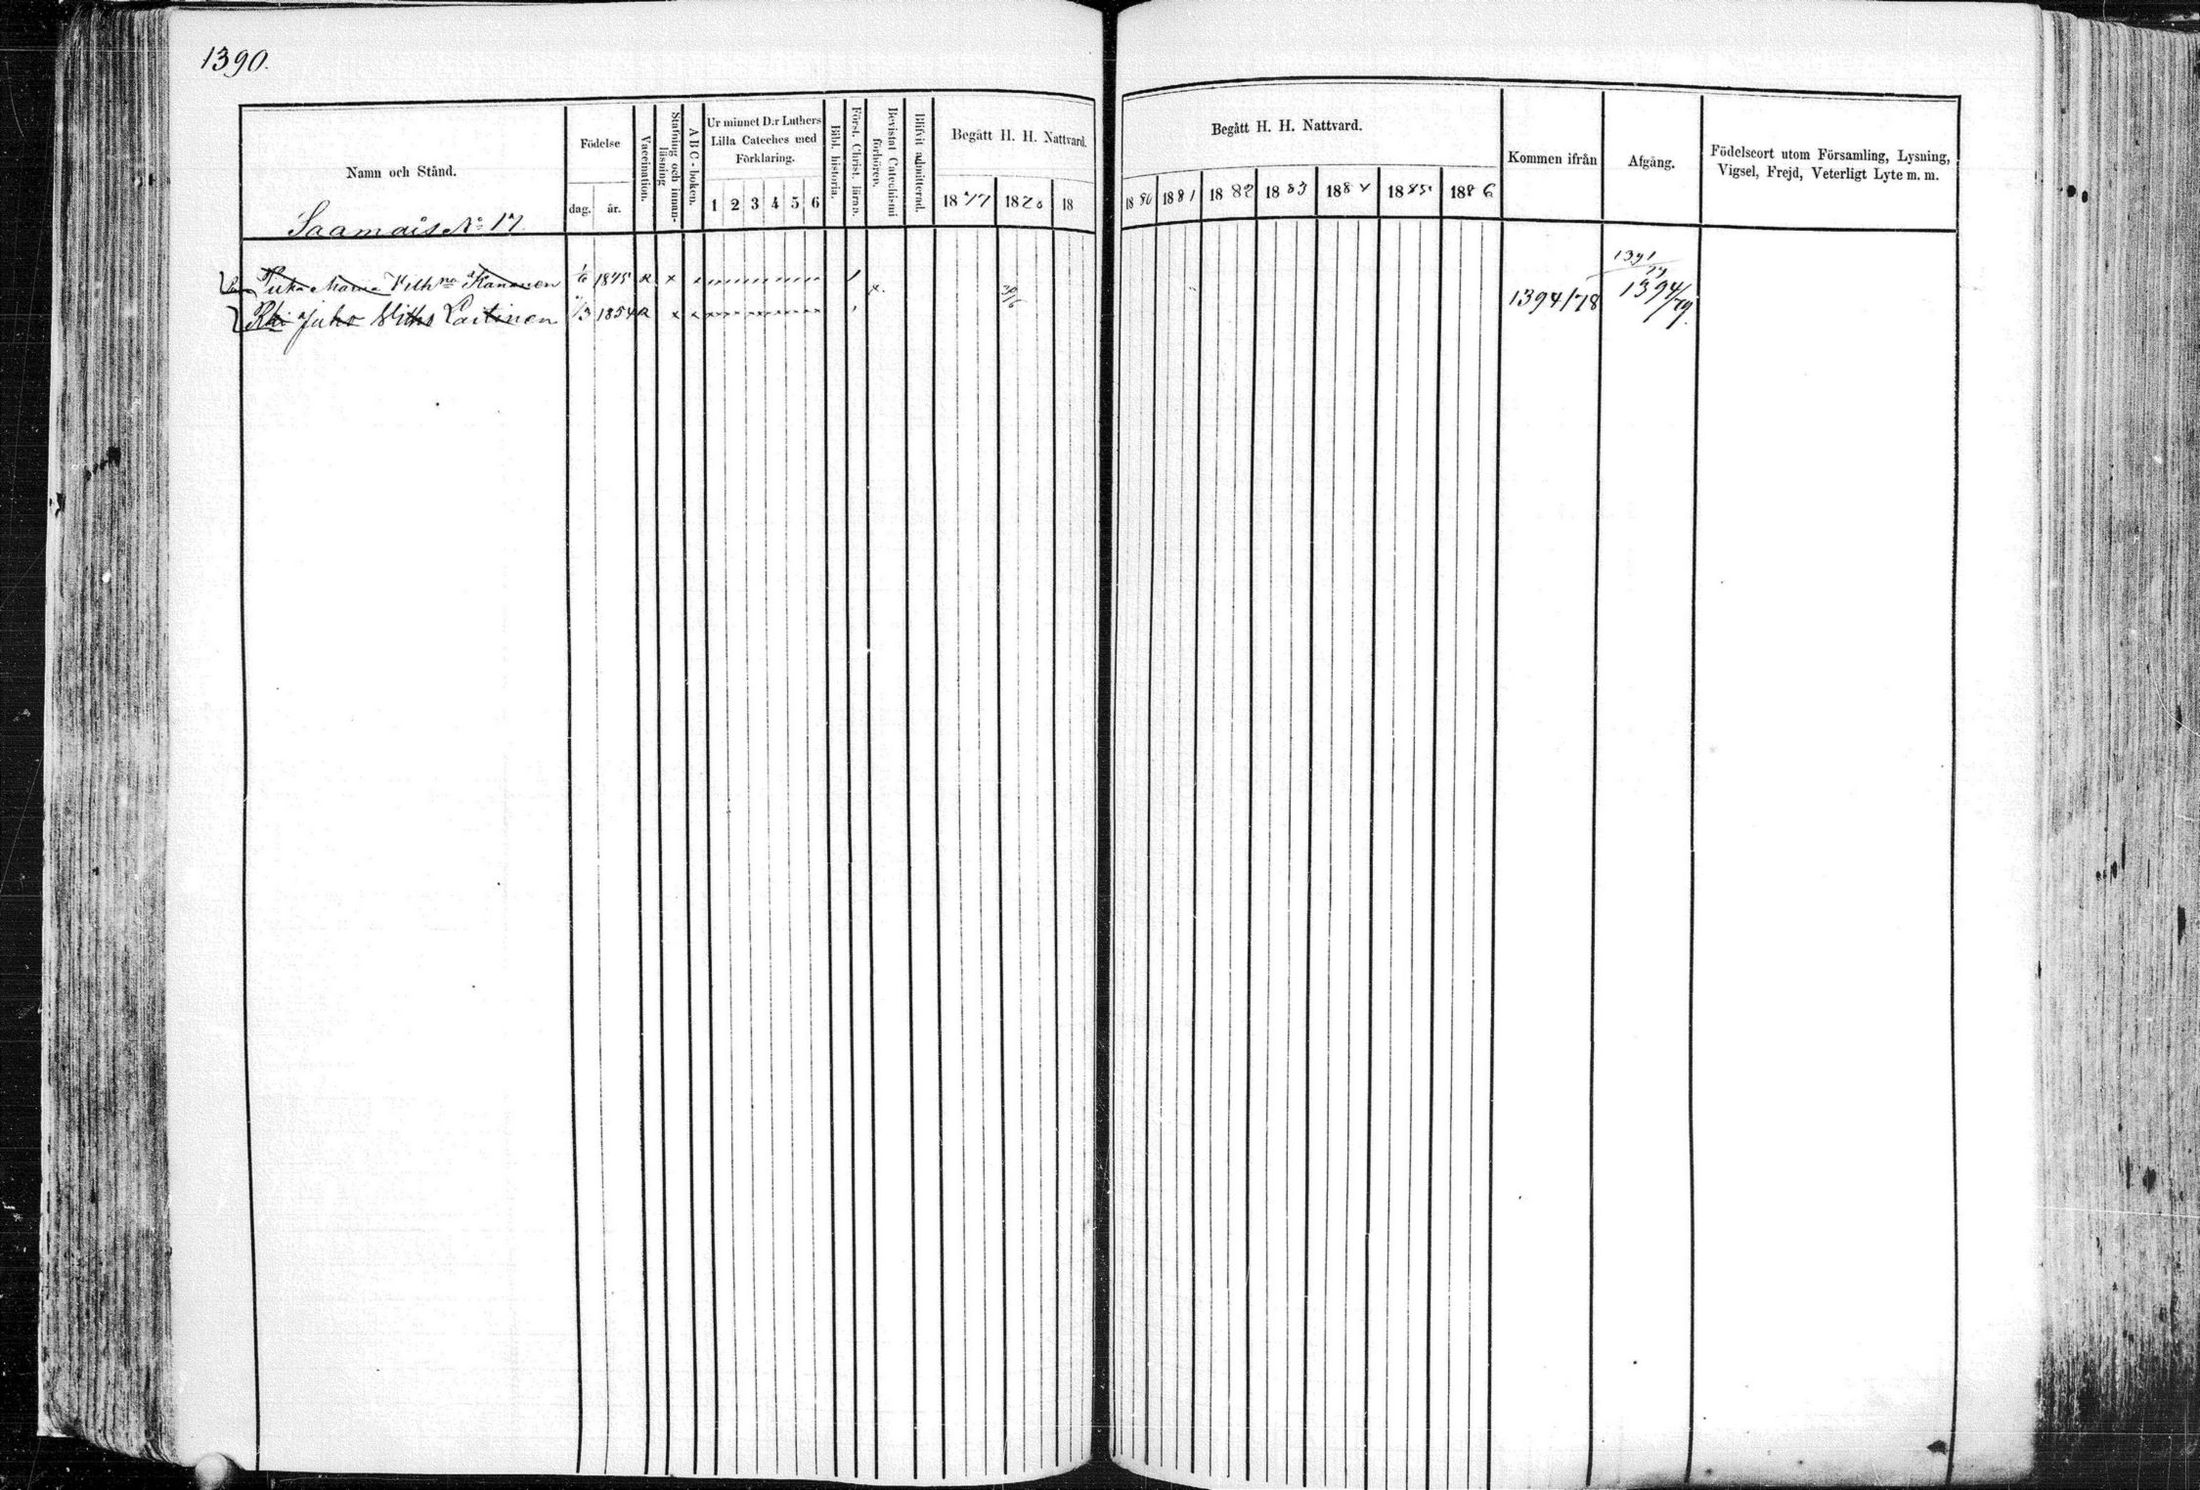 1390.
Namn och Stånd.
Födelse
dag.
år.
Vaccination.
Stafning och innanläsning
ABC-boken.
Ur minnet D:r Luthers Lilla Cateches med Förklaring.
1 2 3 4 5 6
Bibl. historia.
Först. Christ. läran.
Bevistat Catechismi förhören.
Blifvit admitterad.
Begått H. H. Nattvard.
1877 1878 18
Begått H. H. Nattvard.
1880 1881 1882 1883 1884 1885 1886
Kommen ifrån
Afgång.
Födelseort utom Församling, Lysning, Vigsel, Frejd, Veterligt Lyte m. m.
Saamais No 17
Maria Vilh Kananen 1/6 1845 R x
1391
79
Juho Laitinen /3 1854 R x
30/6
1394/78
1394/79.